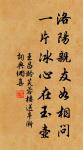 洛陽親友如相問
一片冰心在玉壺
王昌齡芙蓉樓送辛漸
詞典網集